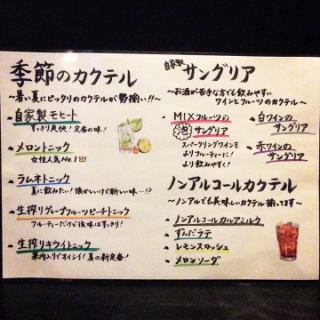 季節のカクテル
〜暑い夏にピッタリのカクテルが勢揃い!!〜
・自家製モヒート
すっきり爽快!定番の味!
・メロントニック
女性人気No.1
・ラムネトニック
夏に飲みたい!懐かしいけど新しい味…!?
・生搾りグレープフルーツピーチトニック
フルーティーだけど後味はすっきり!
・生搾りキウイトニック
果肉入りでオイシイ!夏の新定番!
自家製 サングリア
〜お酒が苦手な方でも飲みやすい
ワインとフルーツのカクテル〜
・MIXフルーツの
泡サングリア
スパークリングワインを
よりフルーティーに!
より飲みやすく!
・白ワインの
サングリア
・赤ワインの
サングリア
ノンアルコールカクテル
〜ノンアルでも美味しいカクテル揃ってます〜
・ノンアルコールカルアミルク
・ずんだラテ
・レモンスカッシュ
・メロンソーダ